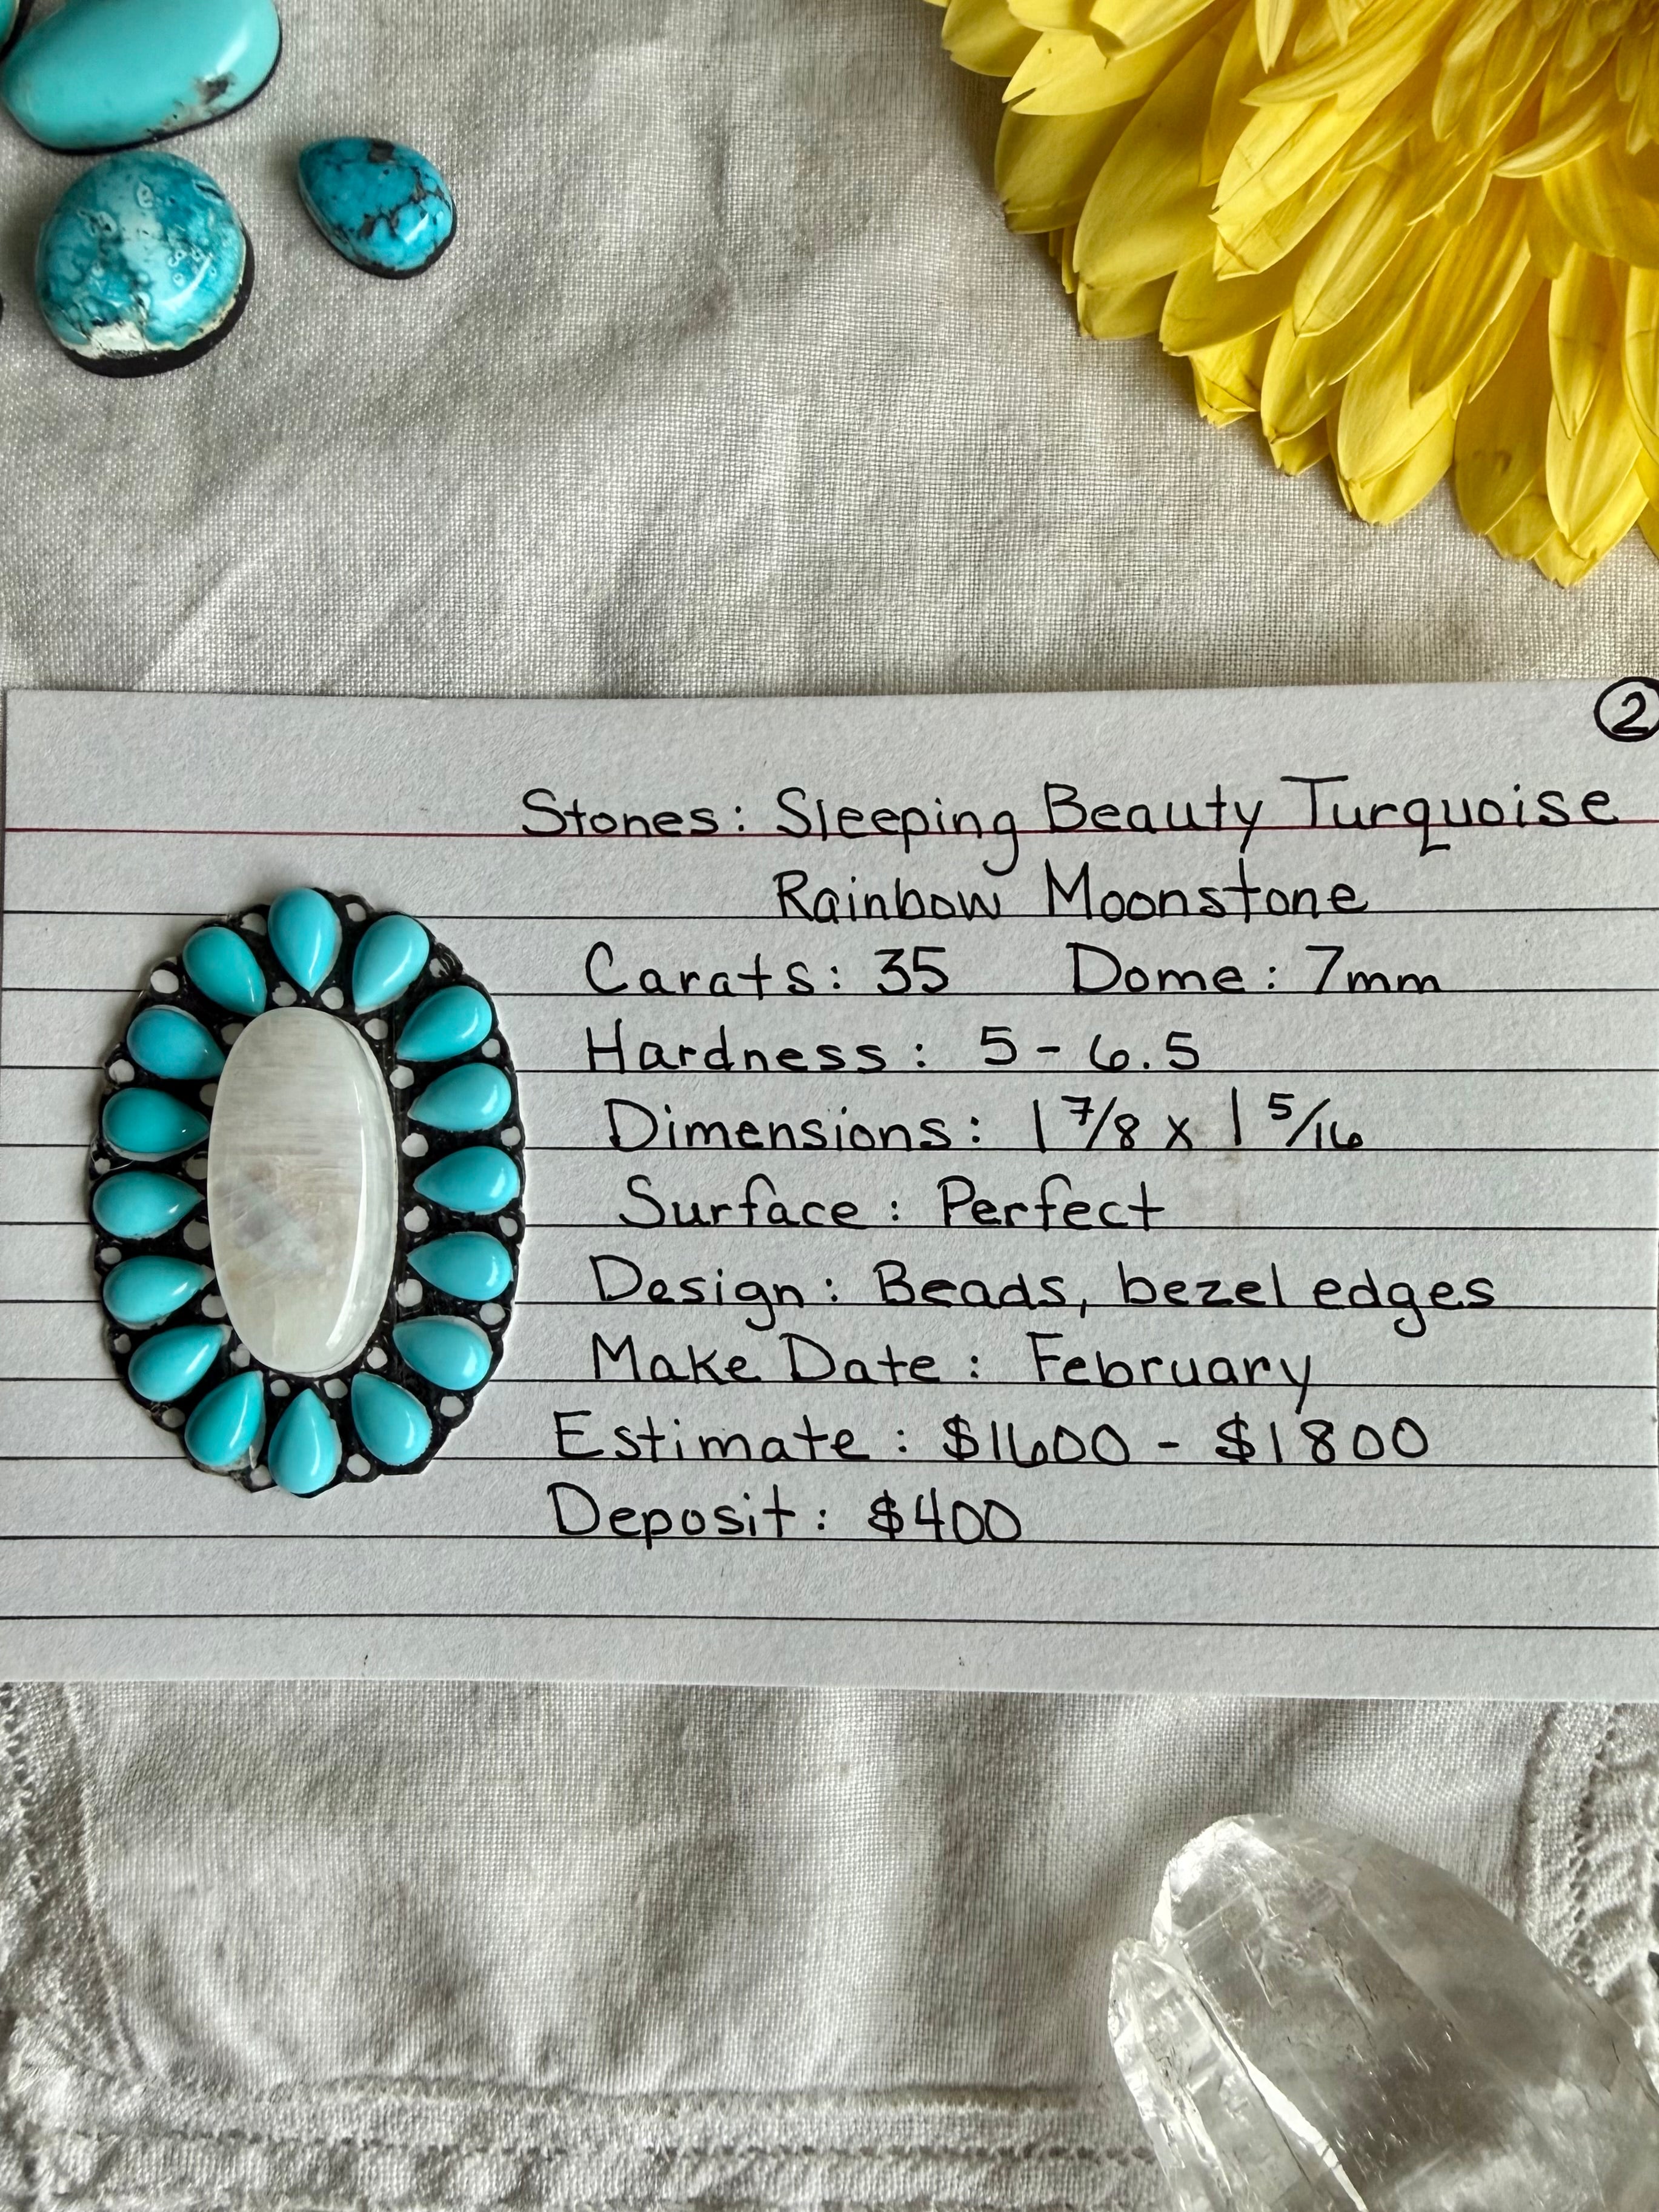 2
Stones: Sleeping Beauty Turquoise
Rainbow Moonstone
Carats: 35 Dome: 7mm
Hardness: 5-6.5
Dimensions: 1 7/8 x 1 5/16
Surface: Perfect
Design: Beads, bezel edges
Make Date: February
Estimate: $1600 - $1800
Deposit: $400